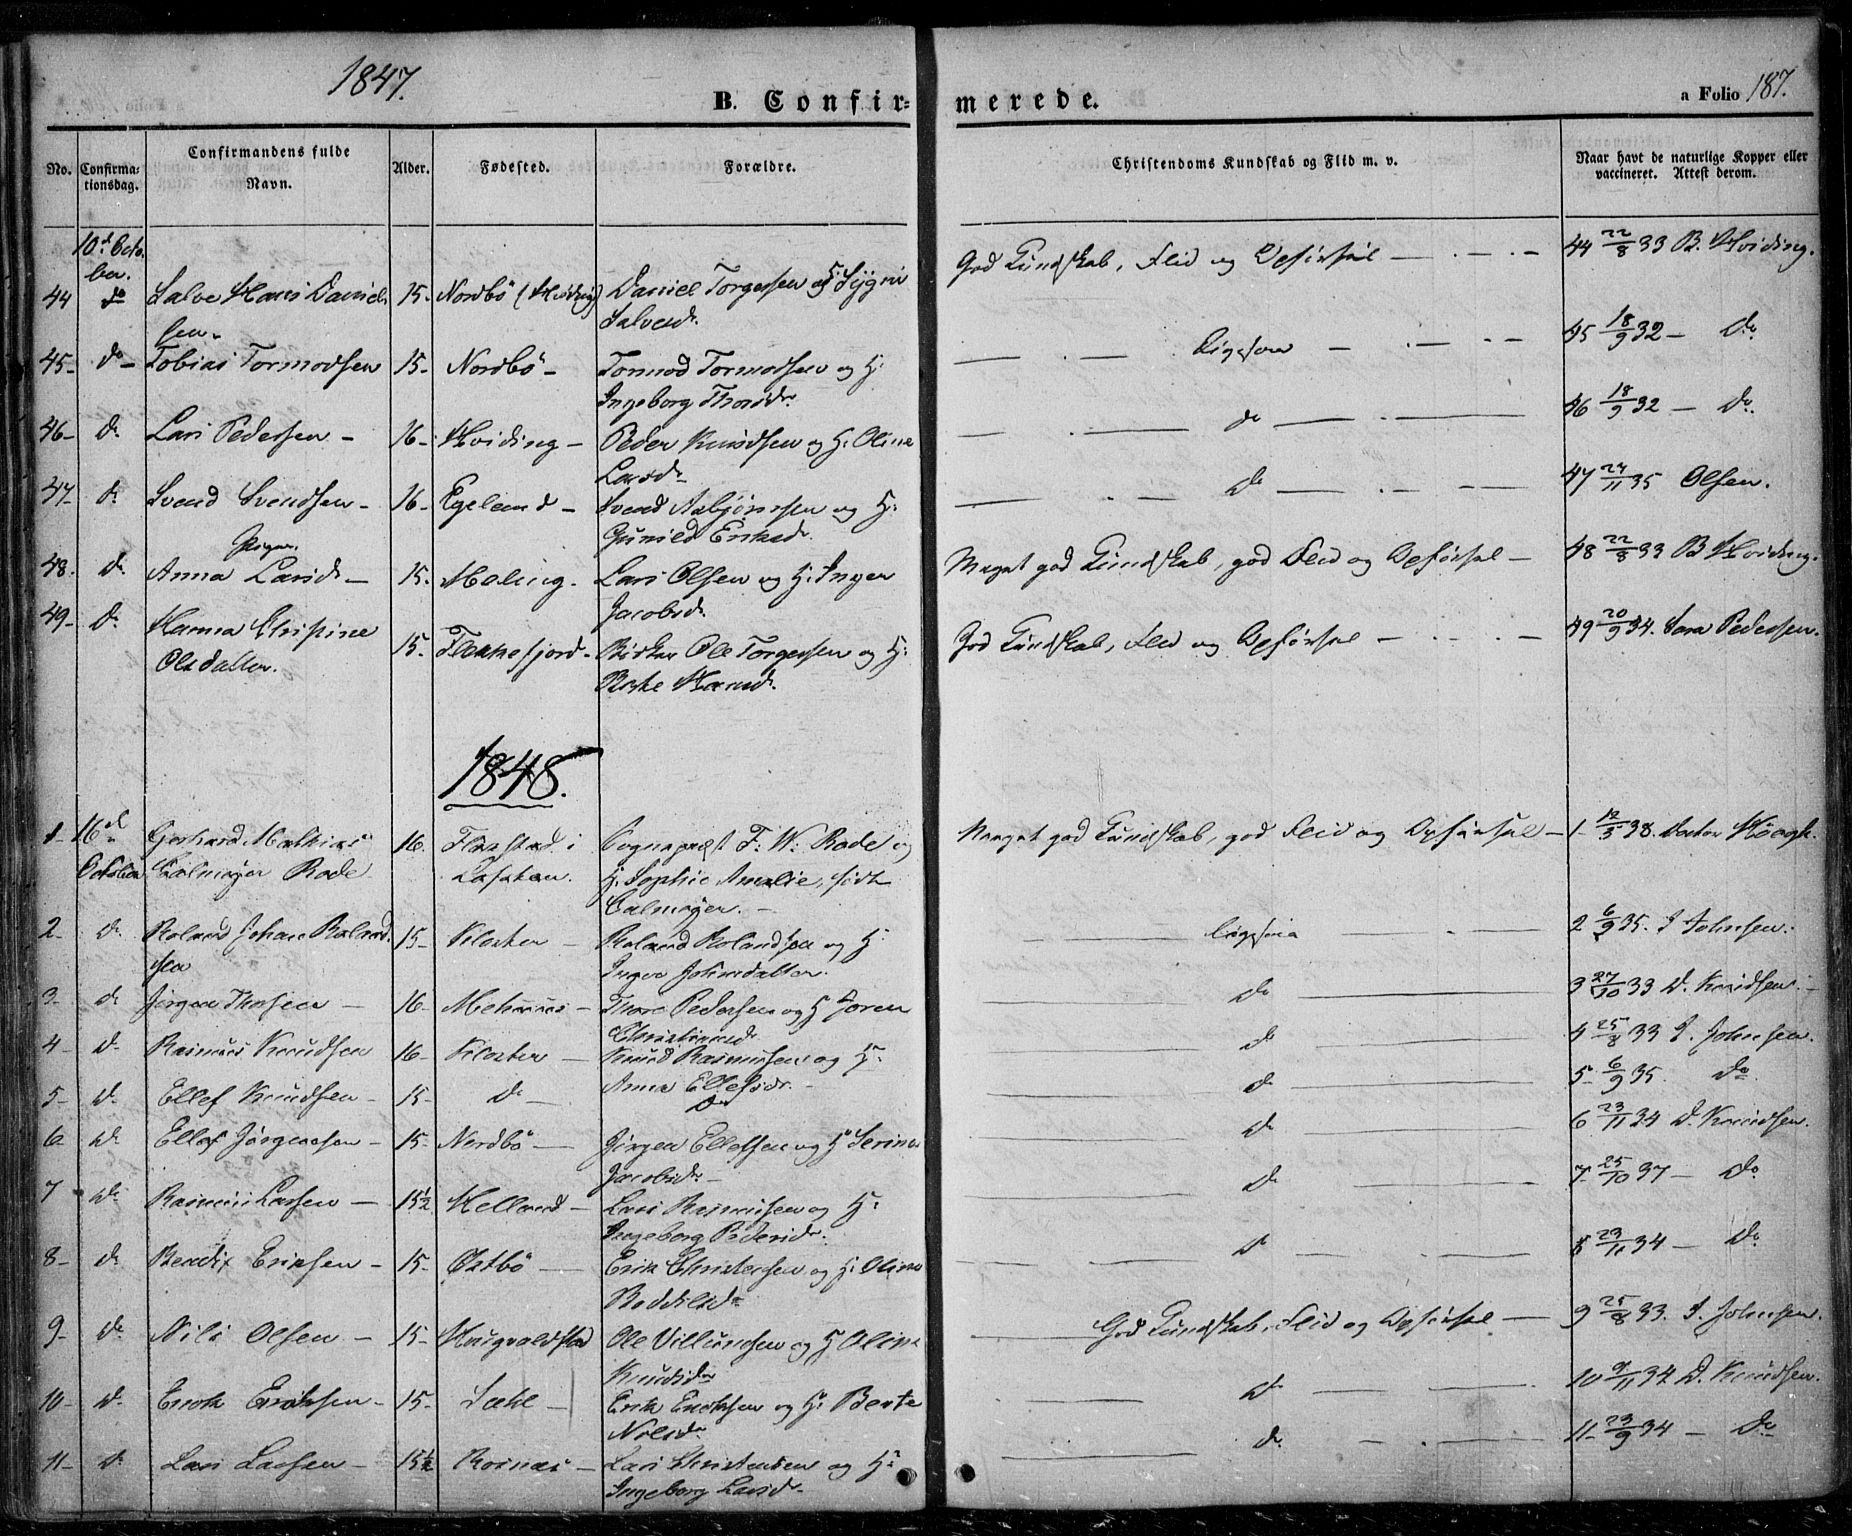 1847.
B. Confir=
merede.
a Folio 187.
No.
Confirma-
tionsdag.
Confirmandens fulde
Navn.
Alder.
Fødested.
Forældre.
Christendoms Kundskab og Flid m. v.
Naar havt de naturlige Kopper eller
vaccineret. Attest derom.
10d Octo-
ber.
44 do Salve Hans Daniel- 15- Nordbö (Hviding) Daniel Torgersen og H: Sygni
sen. Salvesdr.
God Kundskab, Flid og Opförsel 44 22/8 33 B. Hviding.
45- do Tobias Tormodsen 15- Nordbö - Tormod Tormodsen og H:
Ingeborg Thorsdr.
Ligesom 45 18/9 32 - Do
46- do Lars Pedersen - 16- Hviding - Peder Knudsen og H: Oline
Larsdr
do 46 18/9 32 - Do
47- do Svend Svendsen - 16- Egeland - Svend Asbjörnsen og H:
Gunild Eriksdr.
Do 47 24/11 35 Olsen.
Piger.
48. do Anna Larsdr - 15. Maling. Lars Olsen og H: Inger
Jacobsdr.
Meget god Kundskab, god Flid og Opförsel - 48 22/8 33 B Hviding.
49- do Hanna Chrispine
Olsdatter. 15. Flekkefjord. Ole Torgersen og H:
God Kundskab, Flid og Opförsel 49 20/9 34. Lars Pedersen.
1848.
1- 16d
October Gerhard Mathias
Calmeyer Rode 16. Flagstad i
Lofoten. Sogneprest F. W. Rode og
H. Sophie Amalie, födt
Calmeyer. -
Meget god Kundskab, god Flid og Opförsel - 1- 12/5 38. Doctor Höegh.
2- do Roland Johan Roland-
sen 15- Kloster - Roland Rolandsen og H:
Inger Johnsdatter.
Ligesaa 2 6/9 35. I Johnsen.
3- do Jörgen Thorsen - 16- Mehuus - Thore Pedersen og H Joren
Christiansdr
Do 3 27/10 33 D. Knudsen. -
4- do Rasmus Knudsen 16- Kloster - Knud Rasmusen og H:
Anna Ellefsdr. -
Do 4 25/8 33 I. Johnsen.
5- do Ellef Knudsen - 15- Do - Do
Do 5- 6/9 35. Do
6- Do Ellef Jörgensen - 15- Nordbö - Jörgen Ellefsen og H Serina
Jacobsdr -
Do 6 23/11 34 D. Knudsen.
7 Do Rasmus Larsen - 15½ Helland - Lars Rasmusen og H:
Ingeborg Pedersdr.
Do 7- 25/10 37 - Do
8- do Bendix Eriksen - 15- Östbö - Erik Christensen og H: Oline
Boddilsdr
Do 8 23/11 34 - Do
9- do Nils Olsen - 15- Haugvaldstad Ole Villumsen og H Oline
Knudsdr
God Kundskab, Flid og Opförsel - 9 25/8 33. I. Johnsen.
10- do Erik Eriksen - 15- Sækl - Erik Eriksen og H: Berte
Nilsdr
Do 10 9/11 34 D. Knudsen.
11- do Lars Larsen - 15½ Rosnæs - Lars Christensen og H:
Ingeborg Larsdr
do 11- 23/9 34 - Do